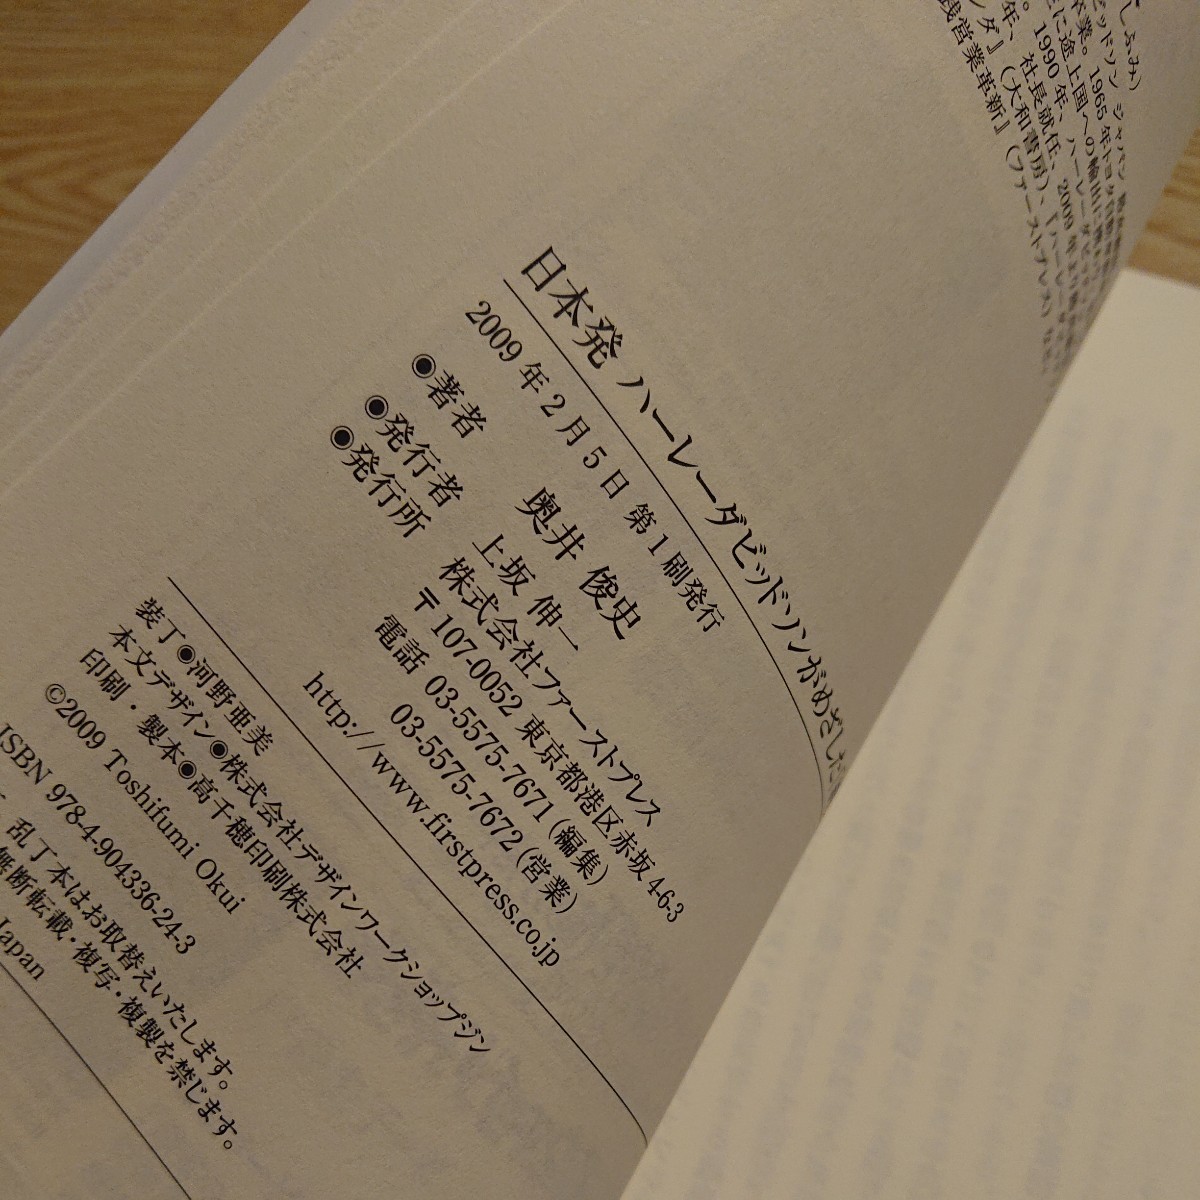 しふみ)
ビッドソン ジャパン
卒業。1965年トヨタ自動車
に途上国への輸出に携わ
。1990年、ハーレーダビッ
年、社長就任、2009年より
ンダ』(大和書房)、『ハーレーダビッ
践営業革新』(ファーストプレス)など
日本発 ハーレーダビッドソンがめざした
2009年2月5日 第1刷発行
◉著者 奥井 俊史
◉発行者 上坂 伸一
◉発行所 株式会社ファーストプレス
〒107-0052 東京都港区赤坂4-6-3
電話 03-5575-7671(編集)
03-5575-7672(営業)
http://www.firstpress.co.jp
装丁◉河野亜美
本文デザイン◉株式会社デザインワークショップジン
印刷・製本◉高千穂印刷株式会社
©2009 Toshifumi Okui
ISBN 978-4-904336-24-3
乱丁本はお取替えいたします。
無断転載・複写・複製を禁じます。
Japan